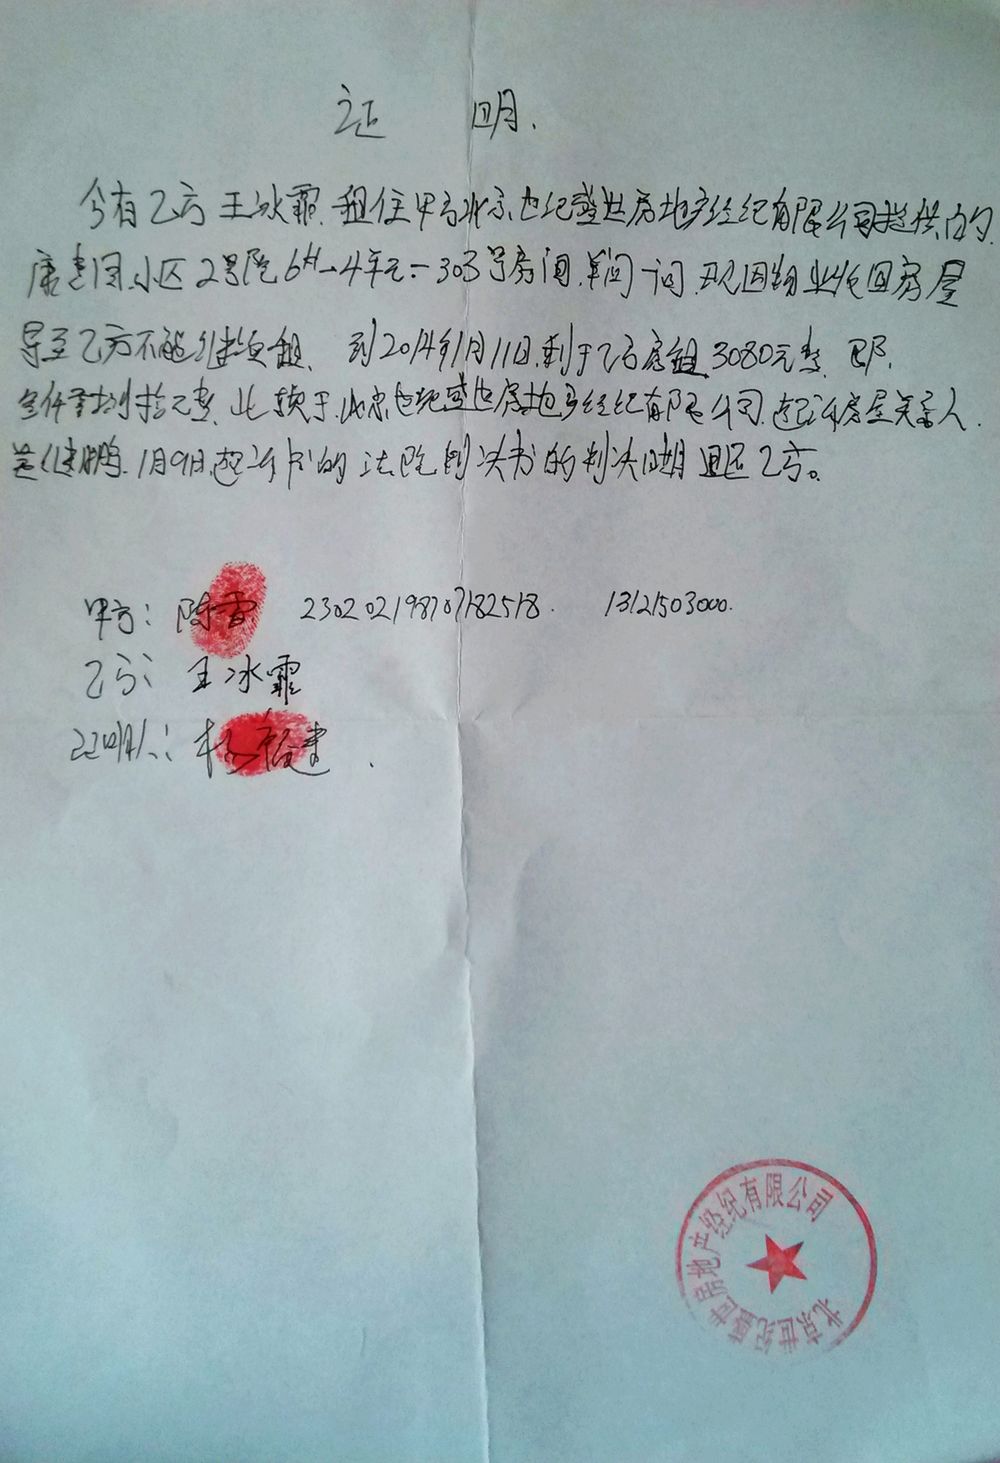 证 明.
今有乙方 王冰霏. 租住甲方北京世纪盛世房地产经纪有限公司提供的.
康惠园小区2号院6#-4单元-303号房间,单间一间.现因物业收回房屋
导至乙方不能继续租. 到2014年1月11日,剩于乙方房租.3080元整. 即.
叁仟零捌拾元整.此款于.北京世纪盛世房地产经纪有限公司.起诉房屋关系人
1月9日.起诉 的法院判决书的判决日期 退还乙方。
甲方: 陈雷 230202198707182518. 13121503000.
乙方: 王冰霏
证明人: 杨 健 .
北京世纪盛世房地产经纪有限公司